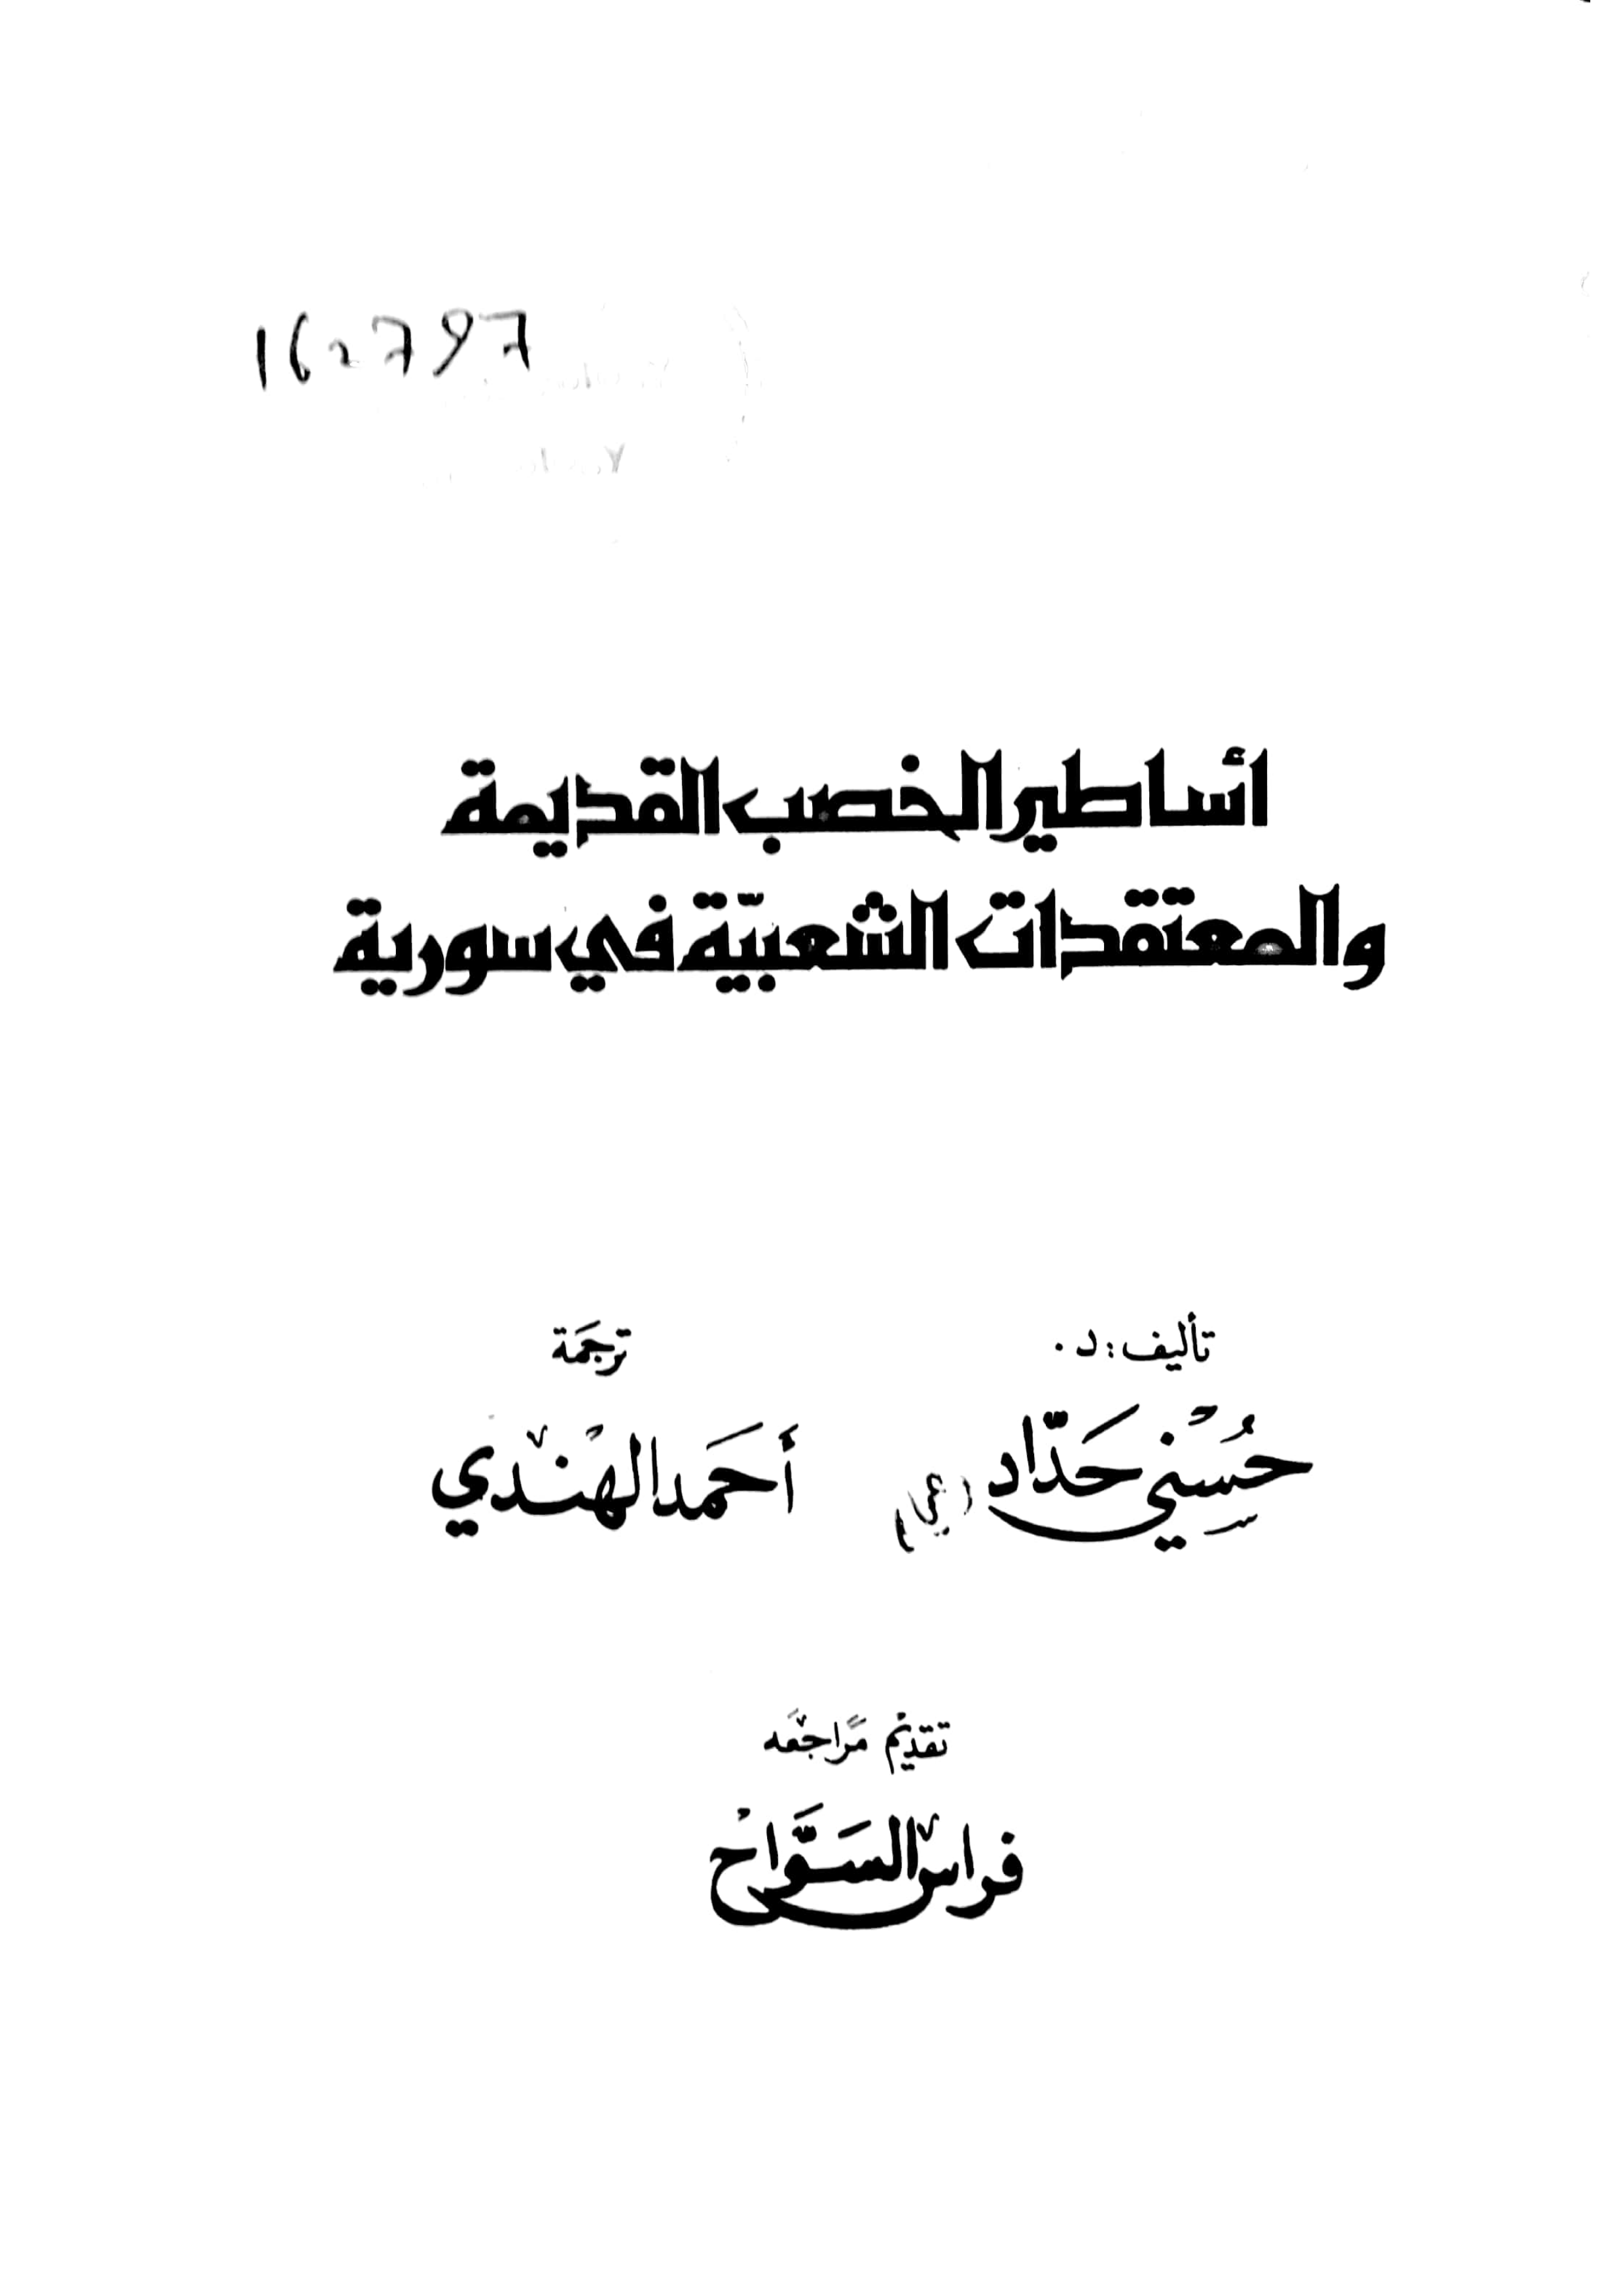 162797
أساطير الخصب القديمة
والمعتقدات الشعبيّة في سورية
تأليف: د.
حُسْني حَدّاد
ترجَمة
أَحَمد الهنْدي
تقديم مَراجعَه
فراس السَوَّاح